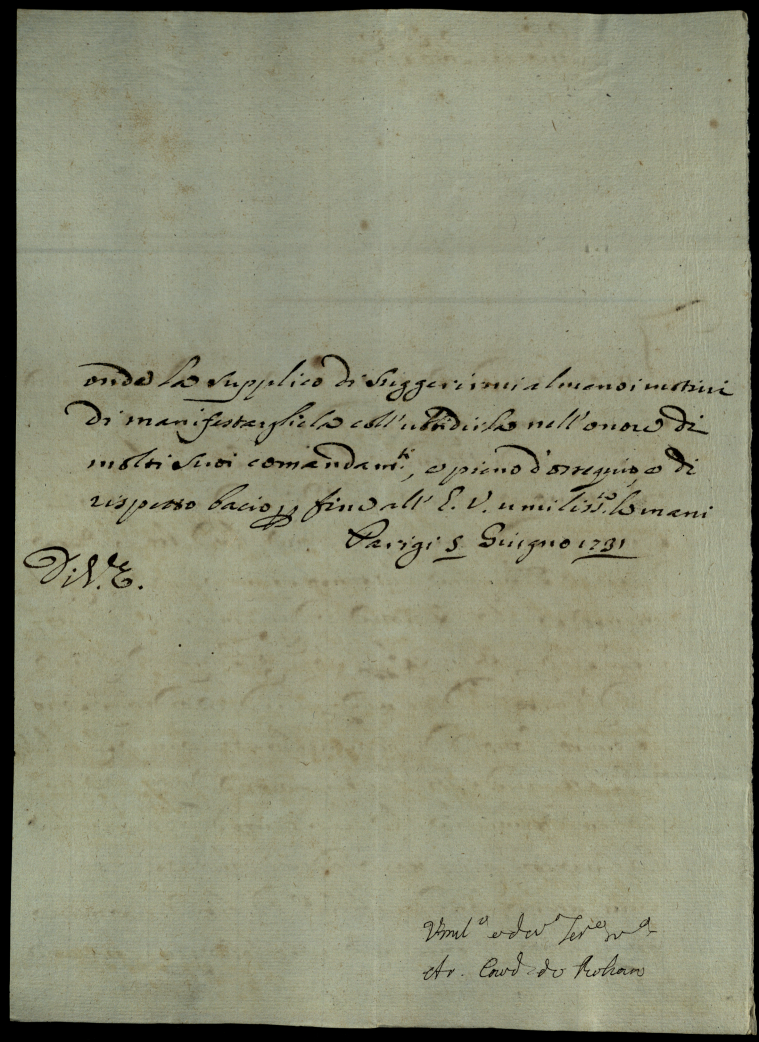 onde la supplico di suggerirmi almeno i motivi
di manifestargliela coll'ubbidirla nell'onore di
molti suoi comandam.ti, e pieno d'ossequio, e di
rispetto bacio per fine all' E. V. umiliss.te le mani
Parigi 5 Giugno 1731
Di V. E.
Umil.o e dev.o Ser.e
Ar. Card. de Rohan